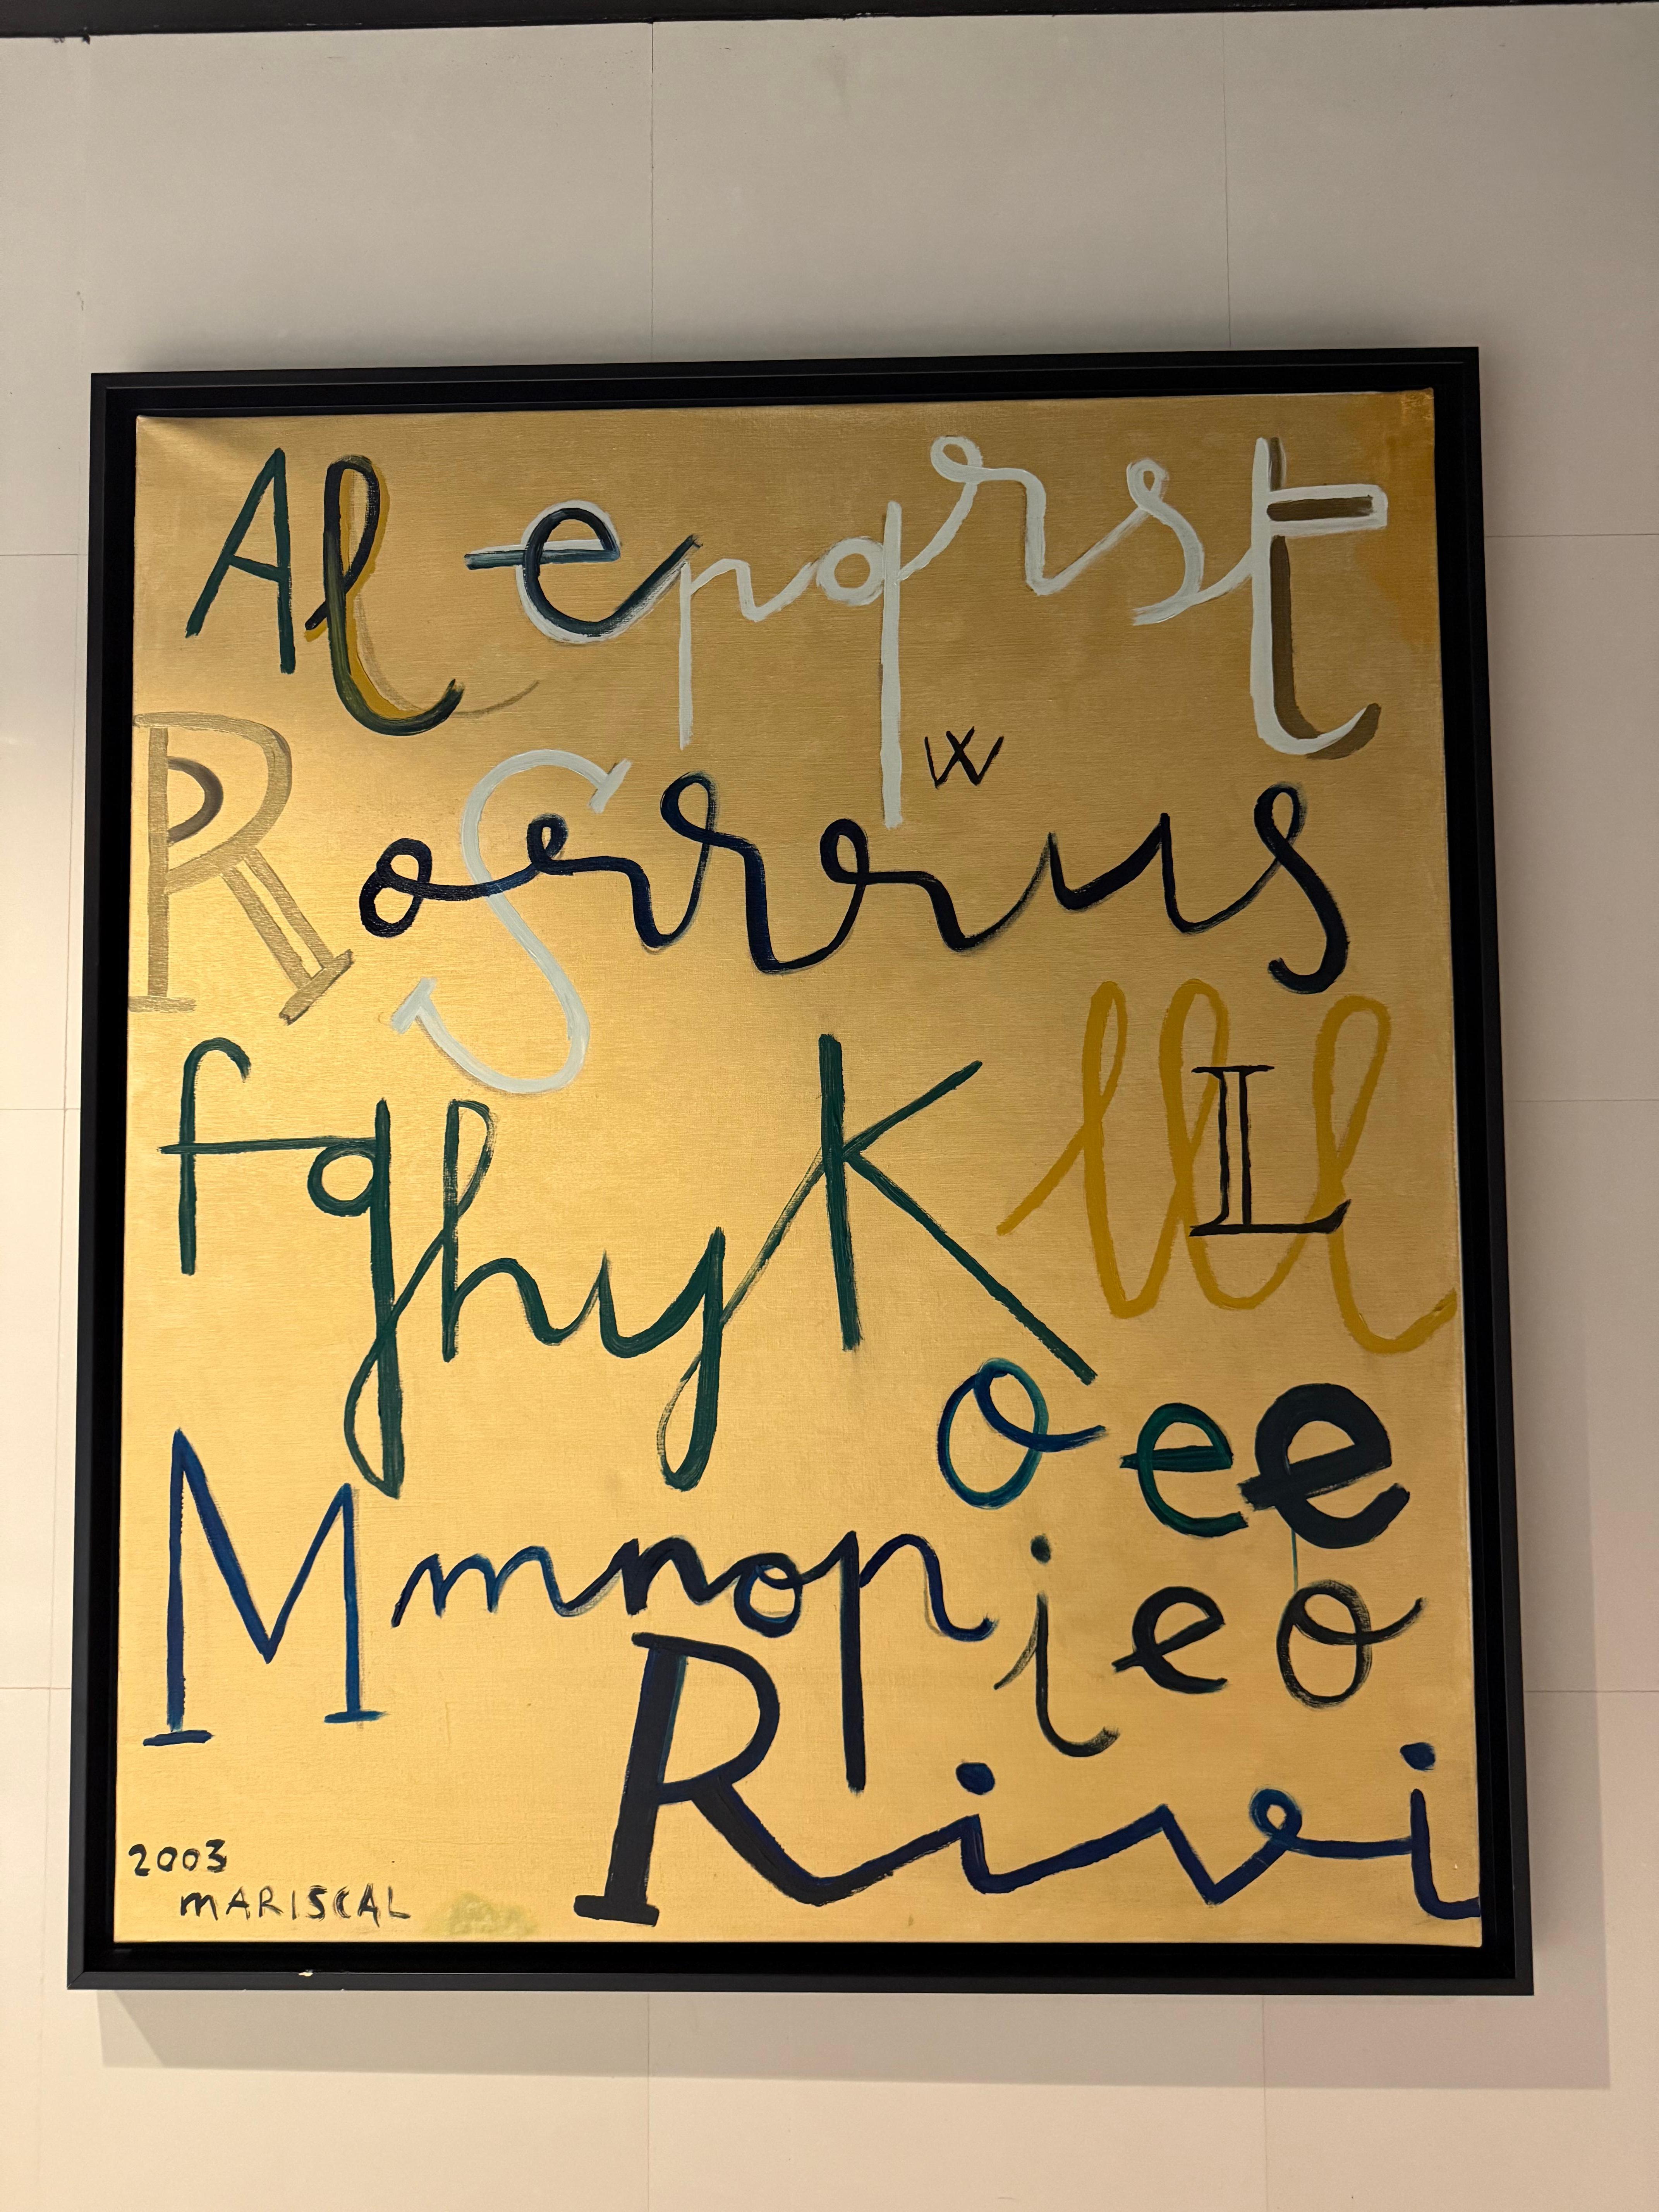 Al epqrst
R S W
oerrus
fghyK lll L
o ee
M mnop i e o
Rivi
2003
MARISCAL